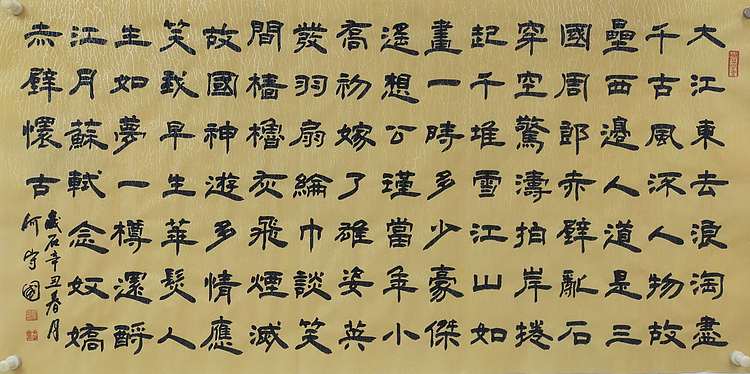 大江東去浪淘盡
千古風流人物故
壘西邊人道是三
國周郎赤壁亂石
穿空驚濤拍岸捲
起千堆雪江山如
畫一時多少豪傑
遙想公瑾當年小
喬初嫁了雄姿英
發羽扇綸巾談笑
間檣櫓灰飛煙滅
故國神遊多情應
笑我早生華髮人
生如夢一樽還酹
江月蘇軾念奴嬌
赤壁懷古
歲在辛丑春月
何守國